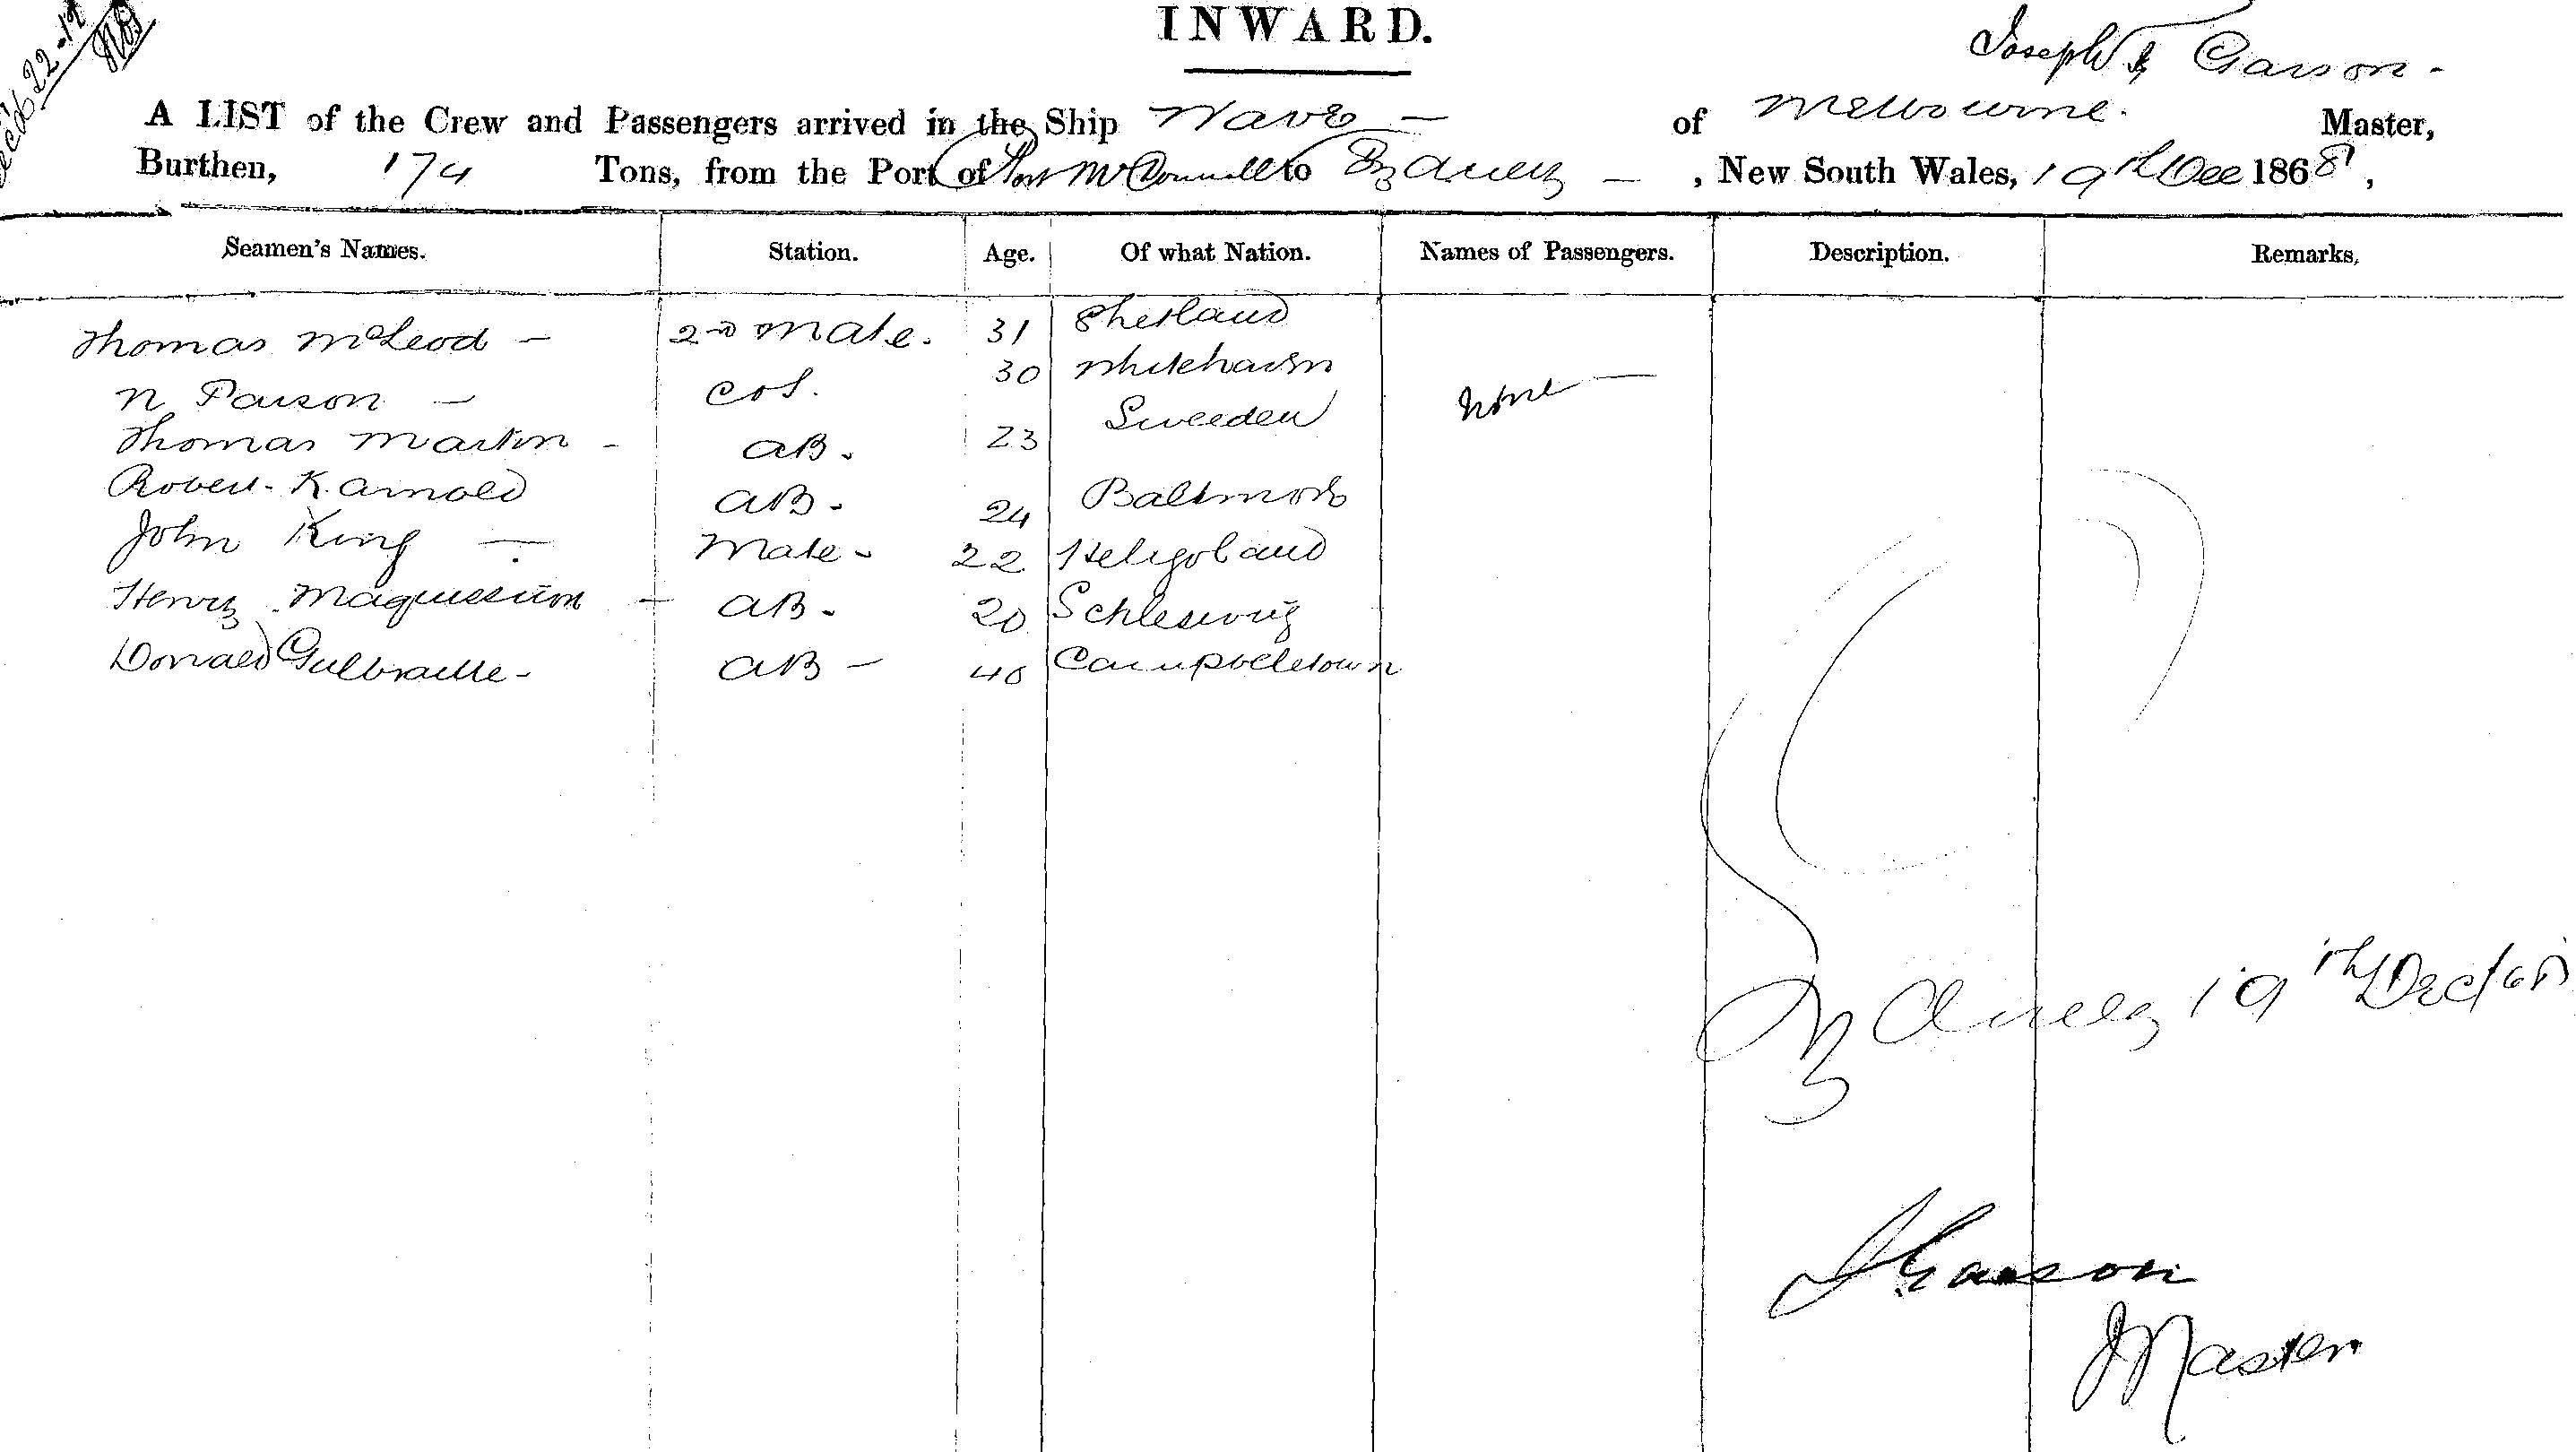 22-12
INWARD.
Joseph Garson -
A LIST of the Crew and Passengers arrived in the Ship Wave - of Melbourne. Master,
Burthen, 174 Tons, from the Port of Port McDonnell to Sydney - , New South Wales, 19th Dec 1868,
Seamen's Names. Station. Age. Of what Nation. Names of Passengers. Description. Remarks,
Thomas McLeod - 2nd Mate. 31 Shetland
N Parson - 30 Whitehaven None -
Thomas Martin - AB. 23 Sweeden
Robert K Arnold AB. 24 Baltimore
John King - Mate - 22 Heligoland
Henry AB. 20 Schleswig
Donald AB - 40 Campbeletown
19th Dec/68
J Garson
Master